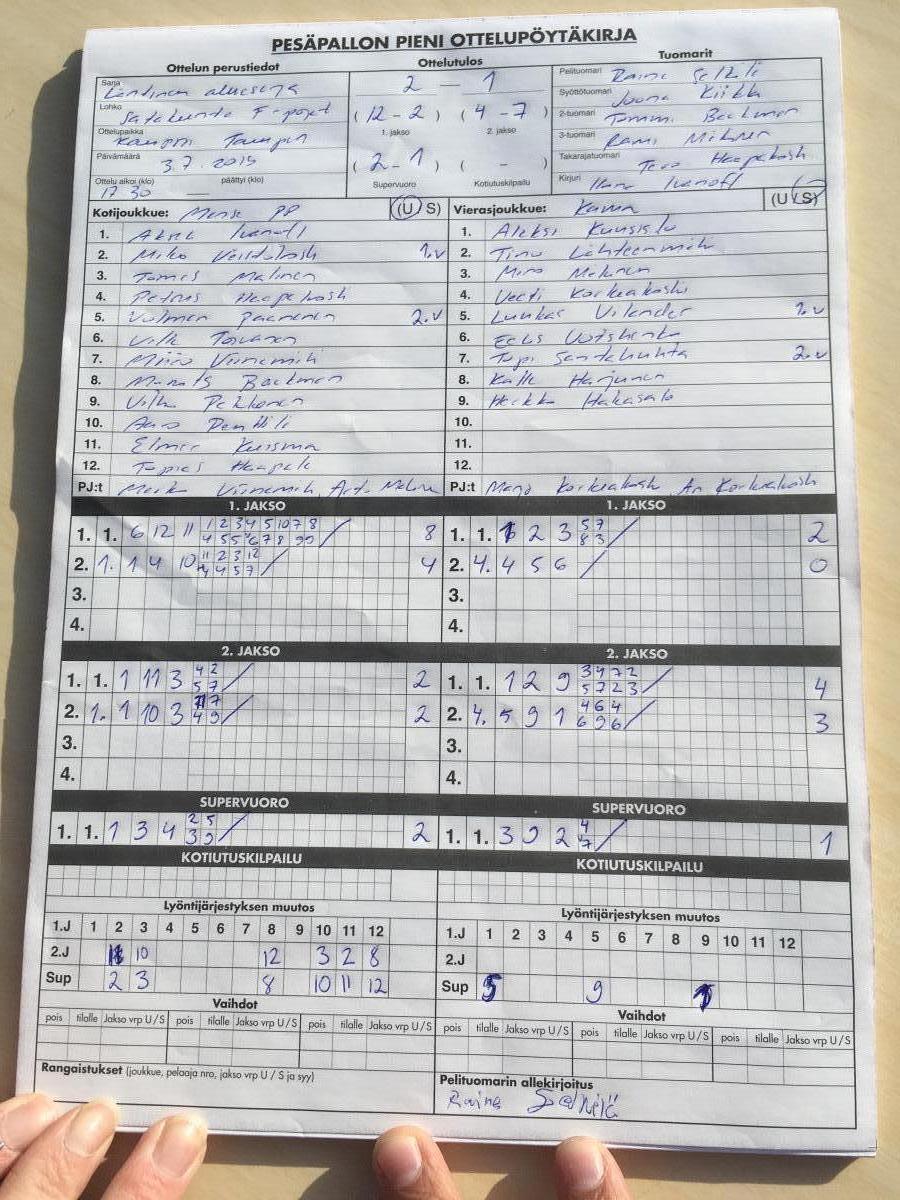 PESÄPALLON PIENI OTTELUPÖYTÄKIRJA
Ottelun perustiedot
Sarja Läntinen aluesarja
Lohko Satakunta F-pojat
Ottelupaikka Kauppi Tampere
Päivämäärä 3.7.2015
Ottelu alkoi (klo) päättyi (klo)
17 30 —
Ottelutulos
2 — 1
(12-2) (4-7)
1. jakso 2. jakso
(2-1) ( - )
Supervuoro Kotiutuskilpailu
Tuomarit
Pelituomari Raine
Syöttötuomari Joona Kiikka
2-tuomari Tommi Backman
3-tuomari Rami Mehnen
Takarajatuomari Tero Haapakoski
Kirjuri Ivanoff
Kotijoukkue: Manse PP (U S)
1. Aksel Ivanoff
2. Miko 1.v
3. Tomas Malinen
4. Petrus Haapakoski
5. Paananen 2.v
6. Ville Toivanen
7. Viinamäki
8. Backman
9. Pekkonen
10. Aaro Penttilä
11. Elmer Kuisma
12. Topias Haapala
PJ:t Viinamäki,
Vierasjoukkue: Kaima (U S)
1. Aleksi Kuusisto
2. Timo Lähteenmäki
3. Miro
4. Veeti Korkeakoski
5. Luukas Vilander 1.v
6. Eelis
7. Topi Santahuhta 2.v
8. Kalle Harjunen
9. Heikki Hakasalo
10.
11.
12.
PJ:t Korkeakoski Korkeakoski
1. JAKSO
1. 1. 6 12 11 1 2 3 4 5 10 7 8 / 8
4 5 5 6 7 8 9 9
2. 1. 1 4 10 11 2 3 12 / 4
4 4 5 7
3.
4.
1. JAKSO
1. 1. 1 2 3 5 7 / 2
8 3
2. 4. 4 5 6 / 0
3.
4.
2. JAKSO
1. 1. 1 11 3 4 2 / 2
5 7
2. 1. 1 10 3 / 2
4 9
3.
4.
2. JAKSO
1. 1. 1 2 9 3 4 7 2 / 4
5 7 2 3
2. 4. 5 9 1 4 6 4 / 3
6 9 6
3.
4.
SUPERVUORO
1. 1. 1 3 4 2 5 / 2
3 9
SUPERVUORO
1. 1. 3 9 2 4 / 1
7
KOTIUTUSKILPAILU
KOTIUTUSKILPAILU
Lyöntijärjestyksen muutos
1.J 1 2 3 4 5 6 7 8 9 10 11 12
2.J 11 10 12 3 2 8
Sup 2 3 8 10 11 12
Lyöntijärjestyksen muutos
1.J 1 2 3 4 5 6 7 8 9 10 11 12
2.J
Sup 5 9 1
Vaihdot
pois tilalle Jakso vrp U / S pois tilalle Jakso vrp U / S pois tilalle Jakso vrp U / S
Vaihdot
pois tilalle Jakso vrp U / S pois tilalle Jakso vrp U / S pois tilalle Jakso vrp U / S
Rangaistukset (joukkue, pelaaja nro, jakso vrp U / S ja syy)
Pelituomarin allekirjoitus
Raine